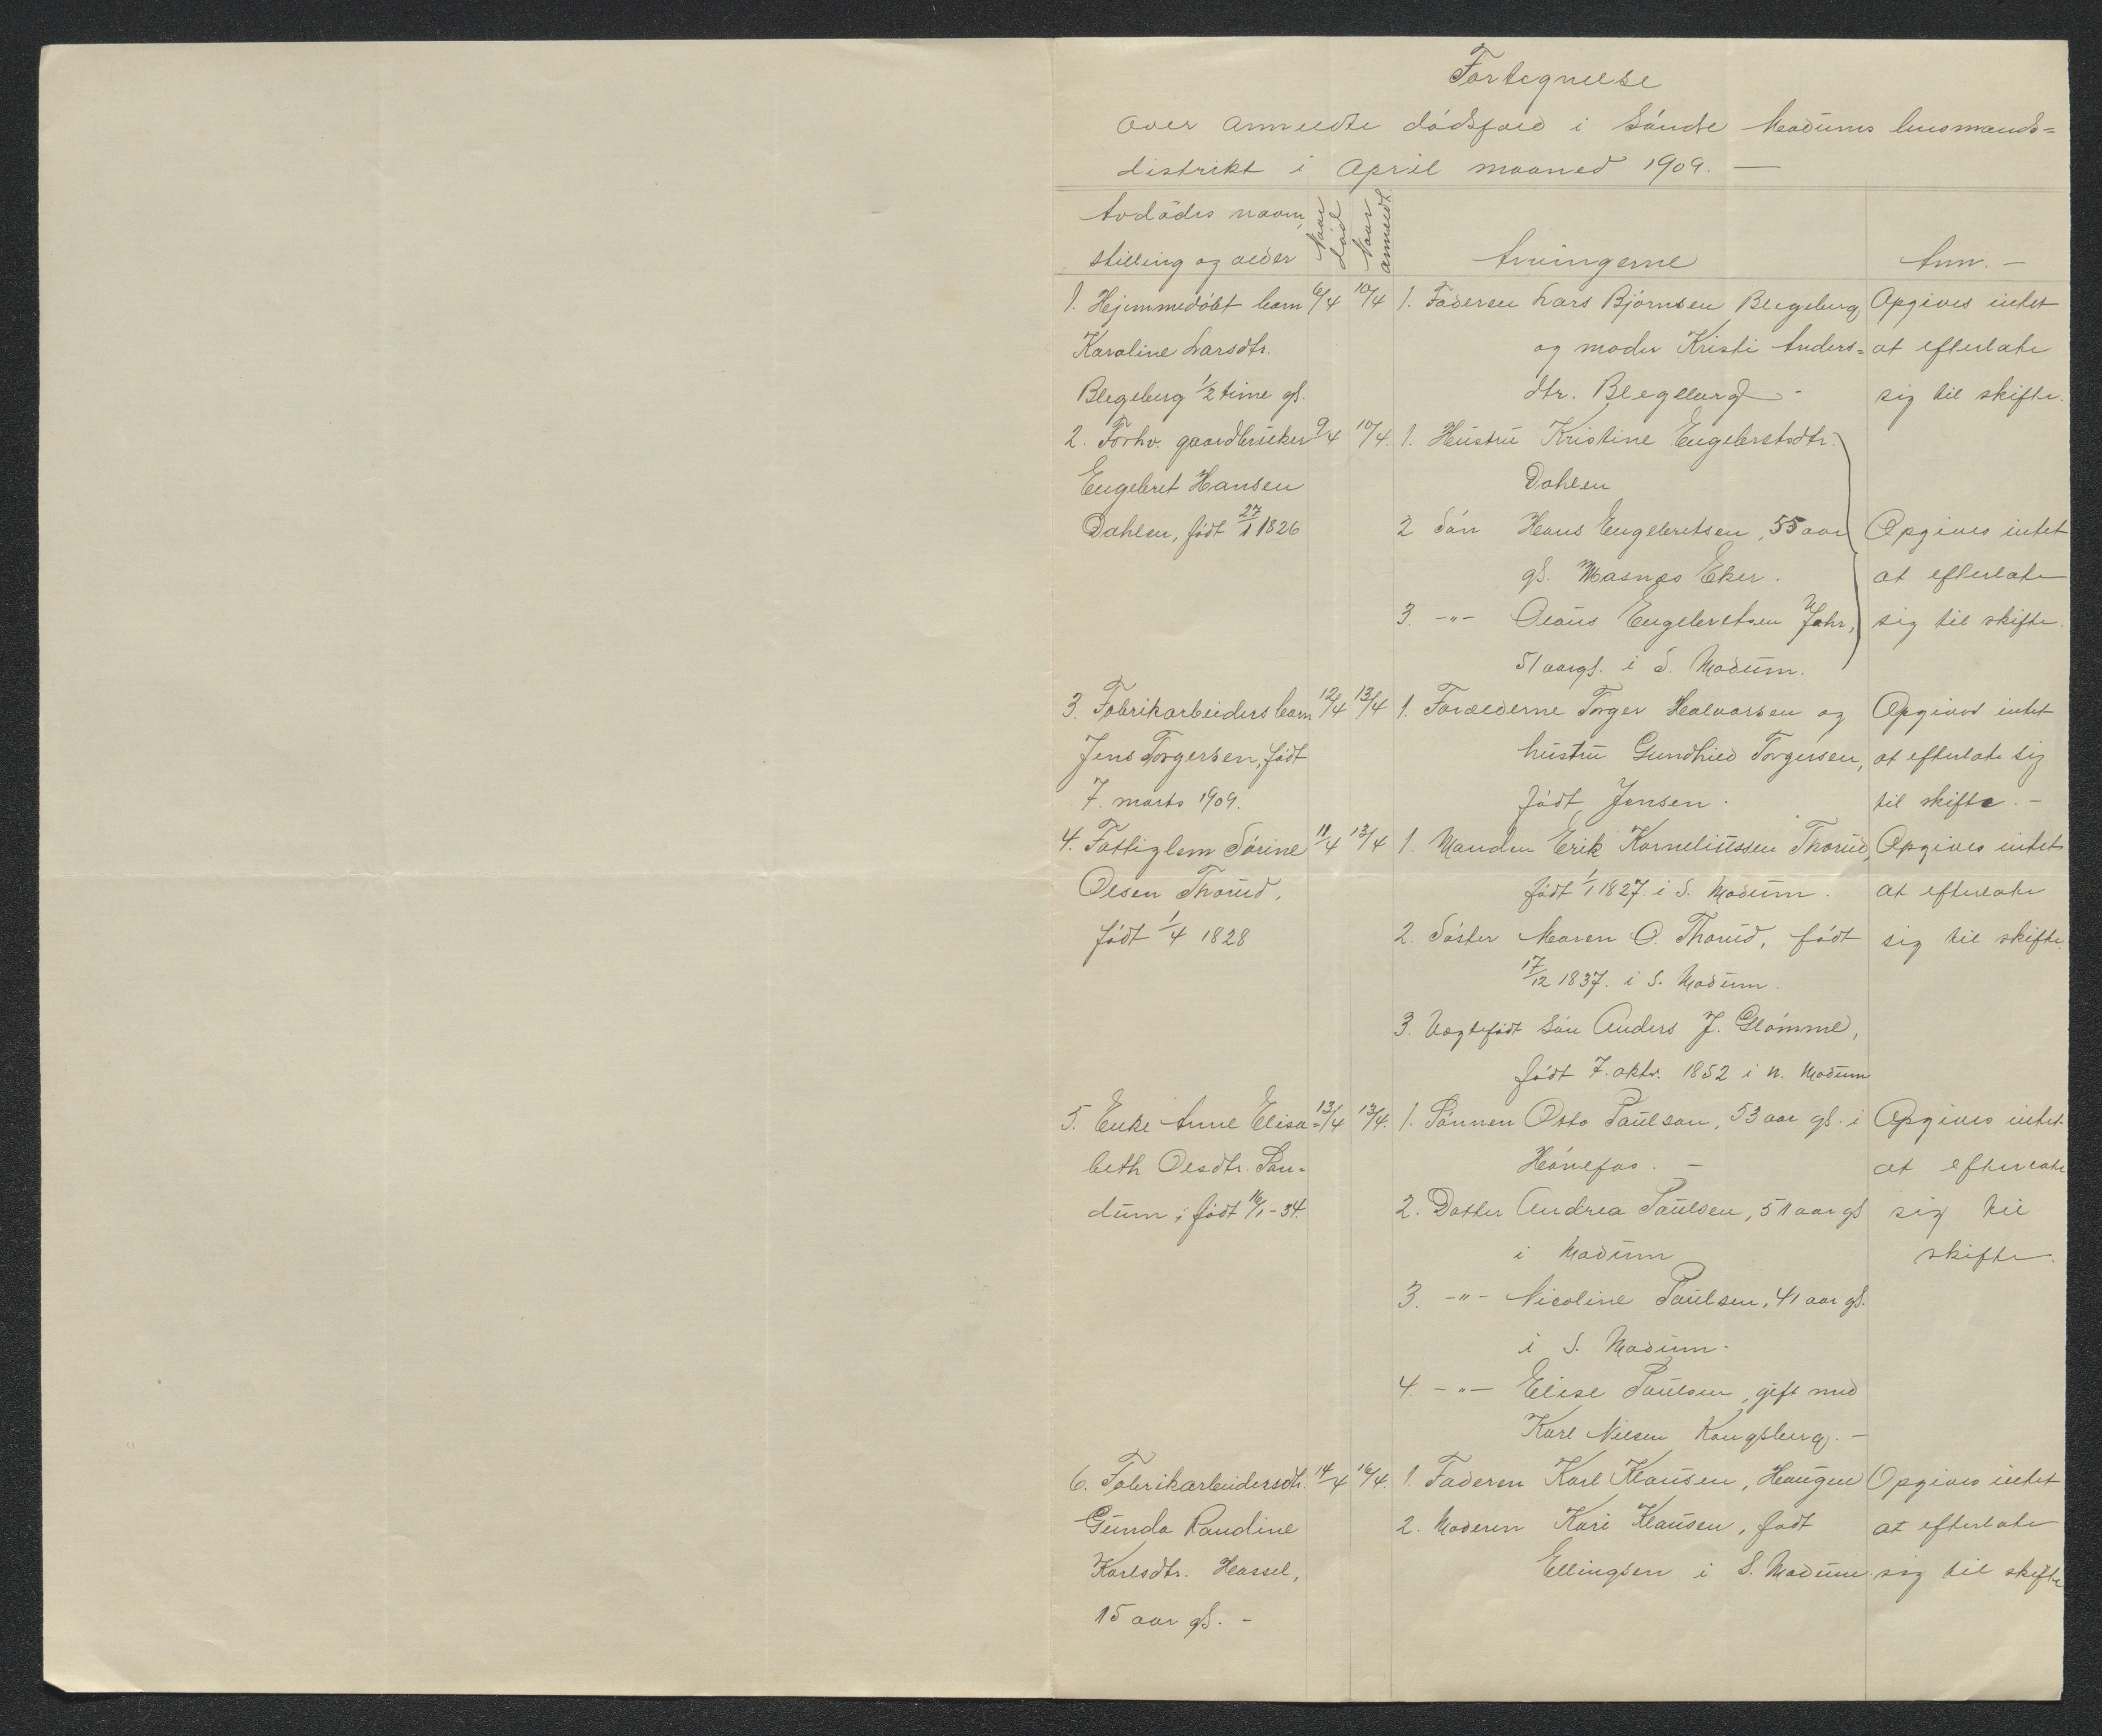 Fortegnelse
over anmeldte dödsfald i Söndre Modums lensmands=
distrikt i April maaned 1909. —
Avdödes navn,
stilling og alder
Naar död
Naar anmeldt
Arvingerne
Anm. —
1. Hjemmedöbt barn 6/4 10/4 1. Faderen Lars Björnsen Blegeberg Opgives intet
Karoline Larsdtr. og moder Kristi Anders= at efterlate
Blegeberg 1/2 time gl. dtr. Blegeberg - sig til skifte.
2. Forhv. gaardbruker 9/4 10/4. 1. Hustru Kristine Engebretsdtr.
Engebret Hansen Dahlen
Dahlen, födt 27/1 1826 2 Sön Hans Engebretsen, 55 aar Opgives intet
gl. Masnæs Eker. at efterlate
3. -"- Olaus Engebretsen Fahr, sig til skifte.
51 aar gl. i S. Modum.
3. Fabrikarbeiders barn 12/4 13/4 1. Forælderne Torger Halvorsen og Opgives intet
Jens Torgersen, födt hustru Gundhild Torgersen, at efterlate sig
7. marts 1909. födt Jensen. til skifte. -
4. Fattiglem Sörine 11/4 13/4 1. Manden Erik Korneliussen Thorud, Opgives intet
Olsen Thorud, födt 1/1 1827. i S. Modum. at efterlate
födt 1/4 1828 2. Söster Maren O. Thorud, födt sig til skifte.
17/12 1837. i S. Modum.
3. Uægtefödt sön Anders J. Glömme,
födt 7. oktr. 1852 i N. Modum
5. Enke Anne Elisa= 13/4 13/4. 1. Sönnen Otto Paulsen, 53 aar gl. i Opgives intet
beth Olsdtr. San= Hönefos. - at efterlate
dum, födt 16/1-34. 2. Datter Andrea Paulsen, 51 aar gl sig til
i Modum skifte.
3. -"- Nicoline Paulsen, 41 aar gl.
i S. Modum.
4. -"- Elise Paulsen, gift med
Karl Nilsen Kongsberg. -
6. Fabrikarbeidersdtr. 14/4 16/4. 1. Faderen Karl Klausen, Haugen Opgives intet
Gunda Randine 2. Moderen Kari Klausen, födt at efterlate
Karlsdtr. Hassel, Ellingsen i S. Modum. sig til skifte
15 aar gl. -